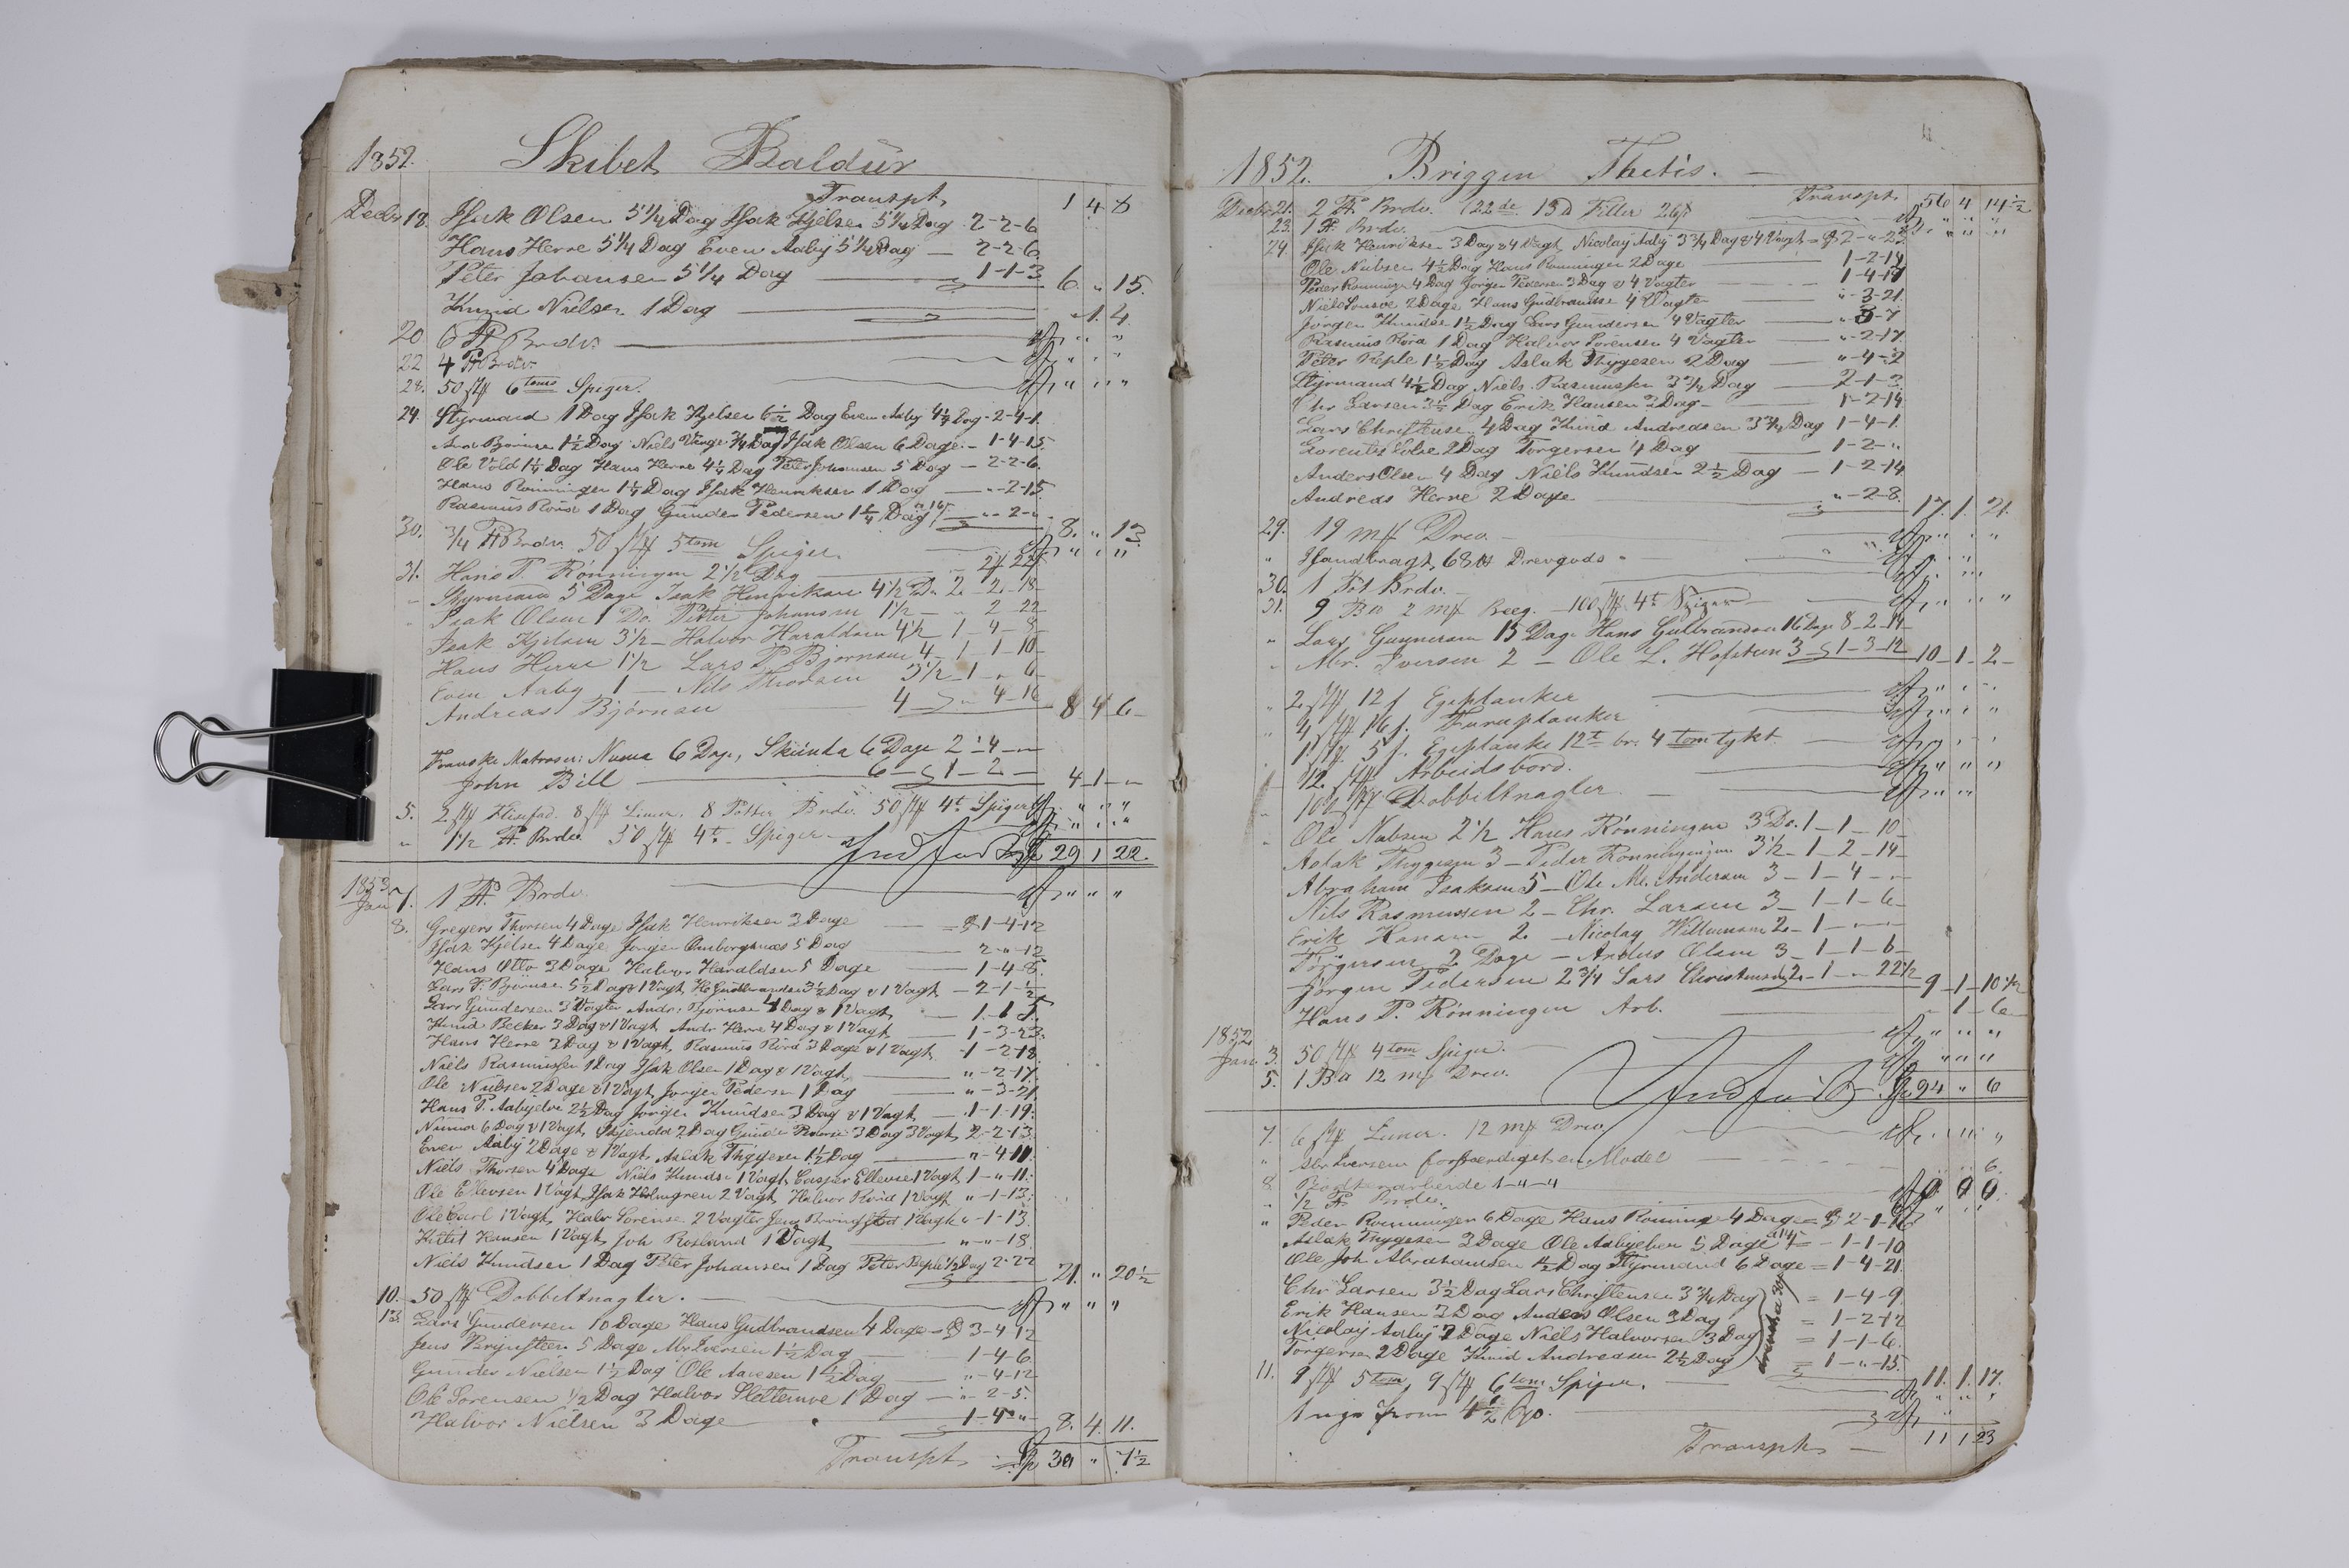 1852. Skibet Baldur
Transpt. 1 4 8
Decbr 18. Isak Olsen 5 1/4 Dag Isak Kjelsen 5 1/4 Dag 2-2-6
Hans Herre 5 1/4 Dag Even Aaby 5 1/4 Dag — 2-2-6
Peter Johansen 5 1/4 Dag — 1-1-3 6. " 15.
Knud Nielsen 1 Dag — " 1. 4
20 6 Brdv. " " "
22 4 Brdv. " " "
50 6 toms Spiger. " " "
24. Styrmand 1 Dag Isak Kjelsen 6 1/2 Dag Even Aaby 4 1/2 Dag - 2-4-1.
1 1/2 Dag Niels 3/4 Dag Isak Olsen 6 Dage - 1-4-15
Ole Vold 1 1/4 Dag Hans Herre 4 1/4 Dag Peter Johansen 5 Dag — 2-2-6.
Hans Rönningen 1 1/4 Dag Isak Henriksen 1 Dag — "-2-15.
Rasmus Röra 1 Dag Gunder Pedersen 1 1/4 Dag — "-2-" 8. " 13.
30. 3/4 Brdv. 50 5 tom Spiger " " "
31. Hans P. Rönningen 2 1/2 Dag
Styrmand 5 Dage Isak Henriksen 4 1/2 D. 2. 2. 18-
Isak Olsen 1 Do. Petter Johansen 1 1/2 — " 2 - 22
Isak Kjelsen 3 1/2 - Halvor Haraldsen 4 1/2 1 - 4 - 8-
Hans Herre 1 1/2 Lars P. Bjørnsen 4 - 1 - 1 - 10-
Even Aaby 1 — Nils Thorsen 3 1/2 - 1 - " 6-
Andreas Bjørnsen 4 — " 4 - 16 8 4 6-
Franske Matroser: Numa 6 Dage, Skiinta 6 Dage 2 - 4 - "
John Bill — 6 — 1 - 2 — 4 - 1 - "
5. 2 8 Limer. 8 Potter Brdv. 50 4t. Spiger " " "
" 1 1/2 Brdv. 50 4t. Spiger " " "
Indført 29 1 22.
1853
Jan 7. 1 Brdv. " " "
8. Gregers Thorsen 4 Dage Isak Henriksen 3 Dage — 1-4-12
Isak Kjelsen 4 Dage Jörgen 5 Dag — 2-"-12
Hans Otto 3 Dage Halvor Haraldsen 5 Dage — 1-4-8.
Lars P. Björnsen 5 1/2 Dag & 1 Vagt, H. Gudbrandsen 3 1/2 Dag & 1 Vagt — 2-1-1/2
Lars Gundersen 3 Vagter Andr: Björnsen 4 Dag & 1 Vagt
Knud Becker 3 Dag & 1 Vagt Andr Herre 4 Dag & 1 Vagt — 1-3-23.
Hans Herre 3 Dag & 1 Vagt, Rasmus Röra 3 Dage & 1 Vagt 1-2-18
Niels Rasmussen 1 Dag Isak Olsen 1 Dag & 1 Vagt, — "-2-17
Ole Nubsen 2 Dage & 1 Vagt Jörgen Pedersen 1 Dag — "-3-21
Hans P. Aabyelve 2 1/2 Dag Jörgen Knudsen 3 Dag & 1 Vagt — 1-1-19.
Numa 6 Dag & 1 Vagt, Skjenda 2 Dag Gunder 3 Dag 3 Vagt, 2-2-13.
Even Aaby 2 Dage & 1 Vagt, Aslak Thygesen 1 1/2 Dag — "-4-11.
Niels Thorsen 4 Dage Niels Knudsen 1 Vagt, Casper Ellevsen 1 Vagt 1-"-11.
Ole Ellevsen 1 Vagt, Isak Holmgren 2 Vagt, Halvor Röra 1 Vagt "-1-13.
Ole Carl 1 Vagt, Halv Sorensen 2 Vagter Jens 1 Vagt "-1-13.
Kittil Hansen 1 Vagt, Joh Rosland 1 Vagt — "-"-18
Niels Knudsen 1 Dag Peter Johansen 1 Dag Peter Reple 1/2 Dag 2-22 21. " 20 1/2
10. 50 Dobbeltnagler. " " "
13. Lars Gundersen 10 Dage Hans Gudbrandsen 4 Dage = 3-4-12
Jens 5 Dage Mr Iversen 1 1/2 Dag — 1-4-6.
Gunder Nielsen 1 1/2 Dag Ole Aavesen 1 1/2 Dag — "-4-12
Ole Sorensen 1/2 Dag Halvor 1 Dag — "-2-5.
Halvor Nielsen 3 Dage 1-4-" 8. 4. 11.
Transpt. 30 " 7 1/2
1852. Briggen Thetis.
Transpt. 56 4 14 1/2
Decbr 21. 2 Brdv. (22de 13 Filler 26 " " "
23. 1 Brdv. " " "
24. Isak Henriksen 3 Dag & 4 Vagt, Nicolay Aaby 3 3/4 Dag & 4 Vagt = 2-"-23.
Ole Nubsen 4 1/2 Dag Hans Rönningen 2 Dage — 1-2-14
Peder Rönningen 4 Dag Jörgen Pedersen 3 Dag & 4 Vagter — 1-4-17
Niels 2 Dage Hans Gudbrandsen 4 Vagter — "-3-21.
Jörgen Knudsen 1 1/2 Dag Lars Gundersen 4 Vagter
Rasmus Röra 1 Dag Halvor Sorensen 4 Vagter — "-2-17.
Peter Reple 1 1/2 Dag Aslak Thygesen 2 Dag — "-4-2
Styrmand 4 1/2 Dag Niels Rasmussen 3 3/4 Dag — 2-1-3.
Chr Larsen 3 1/2 Dag Erik Hansen 3 Dag — 1-2-14
Lars Christensen 4 Dag Knud Andredsen 3 3/4 Dag 1-4-1.
Lorents 2 Dag Torgersen 4 Dag — 1-2-"
Anders Olsen 4 Dag Niels Knudsen 2 1/2 Dag — 1-2-14
Andreas Herre 2 Dage "-2-8. 17. 1. 21.
29. 19 Drev. " " "
" Isandbragt, 68 Drevgods " " "
30. 1 Pot Brdv. " " "
31. 9 2 Beeg. 100 4t Spiger " " "
" Lars Gunnersen 15 Dage Hans Gulbrandsen 16 Dage 8-2-14
Mr. Iversen 2 — Ole L. Hofsteen 3 - 1-3-12 10-1-2-
" 2 12 f Egeplanker " " "
" 4 16 f. Furuplanker " " "
1 5 f. Egeplanke 12t br. 4 tom tykt. " " "
12 Arbeidsbord. " " "
100 Dobbeltnagler. " " "
Ole Nubsen 2 1/2 Hans Rönningen 3 Do. 1-1-10
Aslak Thygesen 3 - Peder Rönningen 3 1/2 - 1-2-14
Abraham Isaksen 5 - Ole Mr. Andersen 3 - 1-4-"
Nils Rasmussen 2 - Chr. Larsen 3 - 1-1-6-
Erik Hansen 2. - Nicolay Willumsen 2 - 1 - "
Törgersen 2 Dage - Anders Olsen 3 - 1-1-6-
Jörgen Pedersen 2 3/4 Lars Christensen 2 - 1 - " 22 1/2 9-1-10 1/2
Hans P. Rönningen Arb. - 1 - 6-
1852
Jan. 3. 50 4 tom Spiger. " " "
5. 1 12 Drev. " " "
Indført 94 " 6
7. 6 Limer. 12 Drev. " " "
" Iversen forfærdiget en Model 6.
8. Bödkerarbeide 1-"-4 0 0 0
" 1/2 Brdv. " " "
" Peder Rönningen 6 Dage Hans Rönningen 4 Dage = 2-1-16
Aslak Thygesen 3 Dage Ole Aabyelven 5 Dage = 1-1-10
Ole Joh Abrahamsen 1/2 Dag Styrmand 6 Dage = 1-4-21.
Chr Larsen 3 1/2 Dag Lars Christensen 3 3/4 Dag = 1-4-9.
Erik Hansen 3 Dag Anders Olsen 3 Dag = 1-2-12
Nicolay Aaby 2 Dage Niels Halvorsen 3 Dag = 1-1-6.
Torgersen 2 Dage Knud Andredsen 2 1/2 Dag = 1-"-15. 11. 1. 17.
11. 9 5 tom, 9 6 tom Spiger. " " "
Transpt — 11 1 23